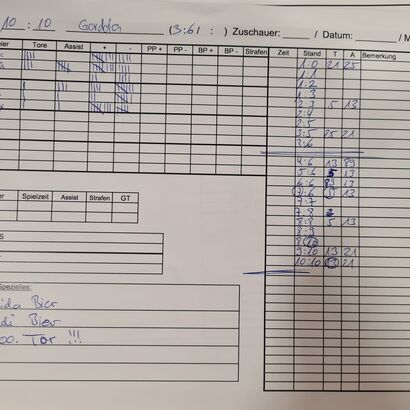 10 : 10 Gordola (3:6/ : ) Zuschauer: / Datum: / M
Tore Assist + - PP + PP - BP + BP - Strafen Zeit Stand T A Bemerkung
1:0 21 25
1:1
1:2
1:3
2:3 5 13
2:4
2:5
3:5 25 21
3:6
4:6 13 89
5:6 5 13
6:6 89 13
7:6 5 13
7:7
7:8
8:8 5 13
8:9
8:10
9:10 13 21
10:10 13 21
Spielzeit Assist Strafen GT
Spezielles:
Bier
Bier
Tor !!!